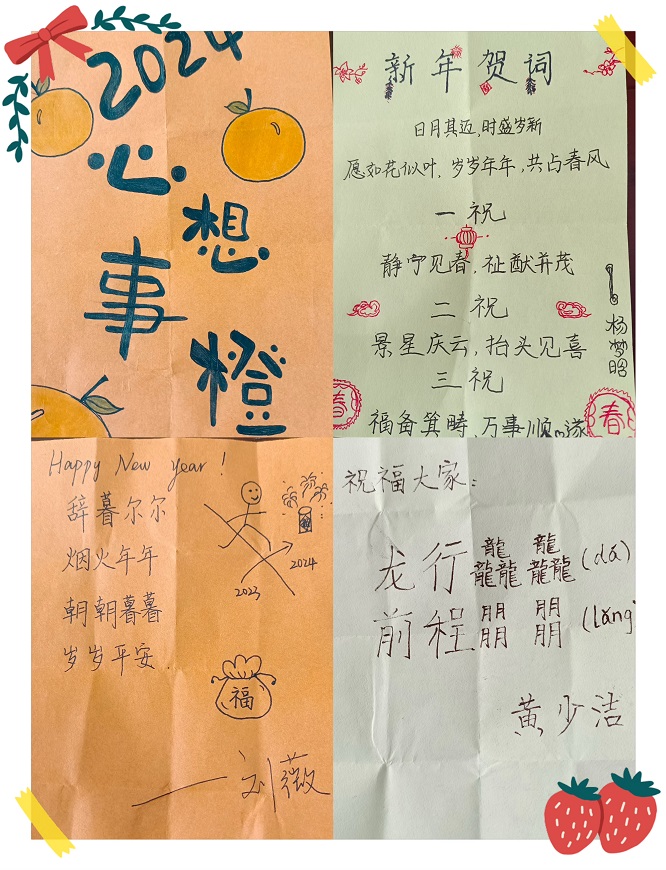 2024
心
想
事
橙
新年贺词
日月其迈,时盛岁新
愿如花似叶,岁岁年年,共占春风
一祝
静宁见春,祉猷并茂
二祝
景星庆云,抬头见喜
三祝
福备箕畴,万事顺遂
杨梦昭
春
春
Happy New Year!
辞暮尔尔
烟火年年
朝朝暮暮
岁岁平安.
2023
2024
福
——刘薇
祝福大家:
龙行龘龘(dá)
前程朤朤(lǎng
黄少洁